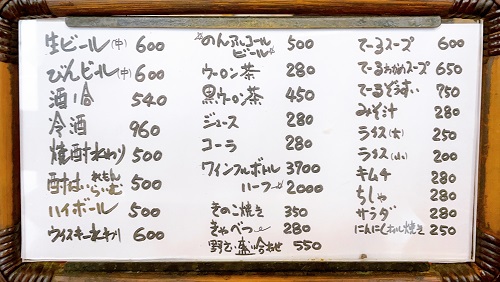 生ビール(中) 600
びんビール(中) 600
酒1合 540
冷酒 960
焼酎水わり 500
酎はい れもん らいむ 500
ハイボール 500
ウイスキー水わり 600
のんアルコール ビール 500
ウーロン茶 280
黒ウーロン茶 450
ジュース 280
コーラ 280
ワインフルボトル 3700
ハーフ〃 2000
きのこ焼き 350
きゃべつ 280
野さい盛り合わせ 550
てーるスープ 600
てーるわかめスープ 650
てーるぞうすい 750
みそ汁 280
ライス(大) 250
ライス(小) 200
キムチ 280
ちしゃ 280
サラダ 280
にんにくホイル焼き 250